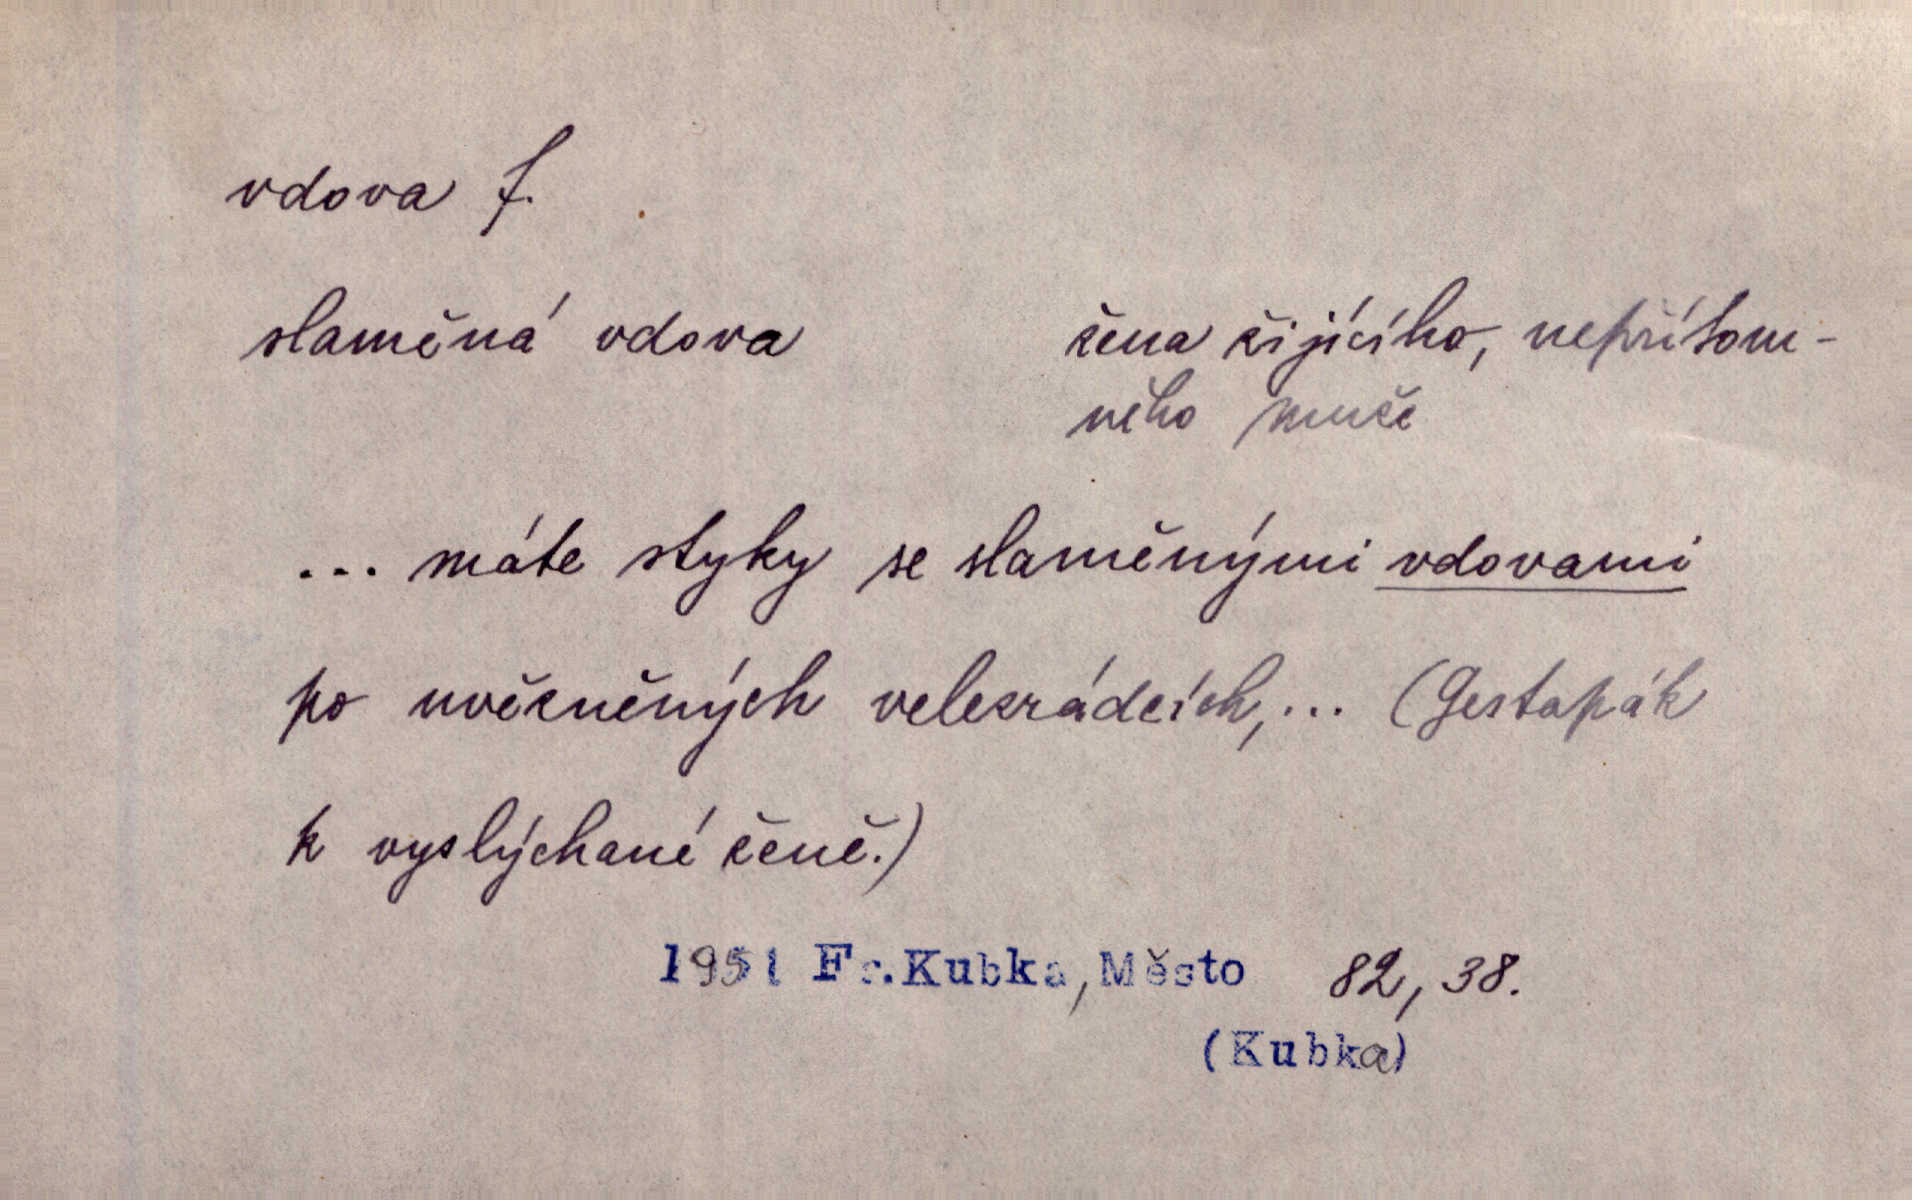 vdova f.
slaměná vdova žena žijícího, nepřítom-
ného muže
... máte styky se slaměnými vdovami
po uvězněných velezrádcích,... (Gestapák
k vyslýchané ženě.)
1951 Fr.Kubka, Město 82, 38.
(Kubka)